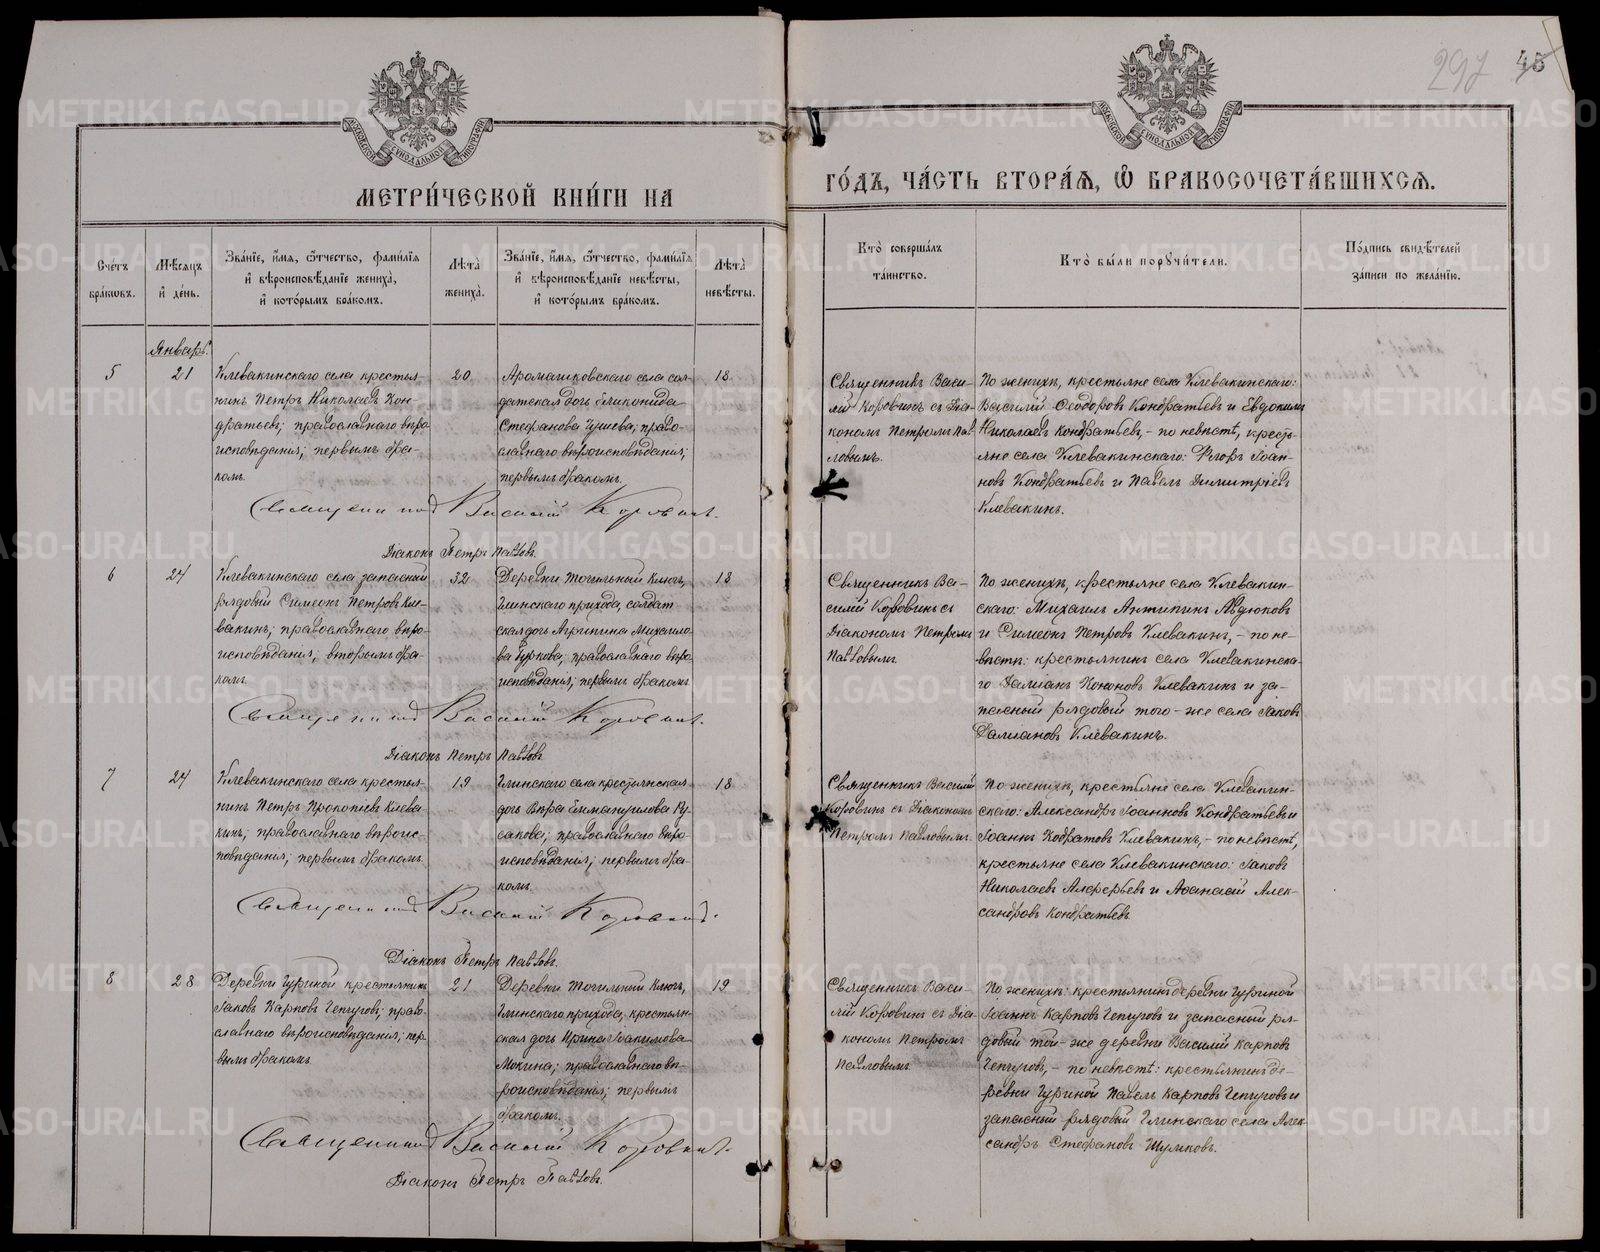 297 45
МОСКОВСКОЙ СУНОДАЛЬНОЙ ТИПОГРАФІИ
МОСКОВСКОЙ СУНОДАЛЬНОЙ ТИПОГРАФІИ
МЕТРИ́ЧЕСКОЙ КНИ́ГИ НА
ГО́ДЪ, ЧА́СТЬ ВТОРА́Ѧ, Ѽ БРАКОСОЧЕТА́ВШИХСѦ.
Сче́тъ бра́кѡвъ.
Мѣ́сѧцъ и҆ де́нь.
Зва́нїе, и҆́мѧ, ѻ҆́тчество, фами́лїѧ
и҆ вѣроисповѣ́данїе жениха̀,
и҆ кото́рымъ бра́комъ.
Лѣ́та жениха̀.
Зва́нїе, и҆́мѧ, ѻ҆́тчество, фами́лїѧ
и҆ вѣроисповѣ́данїе невѣ́сты,
и҆ кото́рымъ бра́комъ.
Лѣ́та невѣ́сты.
Кто̀ соверша́лъ
та́инство.
Кто̀ бы́ли порꙋчи́тели.
По́дпись свидѣ́телей
за́писи по жела́нїю.
Январь.
5
21
Клевакинскаго села крестья-
нинъ Петръ Николаевъ Кон-
дратьевъ; православнаго вѣро-
исповѣданія; первымъ бра-
комъ.
20
Арамашковскаго села сол-
датская дочь
Стефанова Гушева; право-
славнаго вѣроисповѣданія;
первымъ бракомъ.
18
Священникъ Васи-
лій Коровинъ съ Діа-
кономъ Петромъ Пав-
ловымъ.
По женихѣ, крестьяне села Клевакинскаго:
Василій Ѳеодоровъ Кондратьевъ и Евдокимъ
Николаевъ Кондратьевъ, – по невѣстѣ, кресть-
яне села Клевакинскаго: Егоръ Іоан-
новъ Кондратьевъ и Павелъ Димитріевъ
Клевакинъ.
Священникъ Василій Коровинъ.
Діаконъ Петръ Павловъ.
6
24
Клевакинскаго села запасный
рядовый Симеонъ Петровъ Кле-
вакинъ; православнаго вѣро-
исповѣданія; вторымъ бра-
комъ.
32
Деревни Точильный Ключъ,
Глинскаго прихода, солдат
ская дочь Агрипина Михаило-
ва Гуркова; православнаго вѣро-
исповѣданія; первымъ бракомъ.
18
Священникъ Ва-
силій Коровинъ съ
Діакономъ Петромъ
Павловымъ.
По женихѣ, крестьяне села Клевакин-
скаго: Михаилъ Антипинъ Авдюковъ
и Симеонъ Петровъ Клевакинъ, – по не-
вѣстѣ: крестьянинъ села Клевакинска-
го Даміанъ Кононовъ Клевакинъ и за-
пасный рядовый того-же села Іаковъ
Даміановъ Клевакинъ.
Священникъ Василій Коровинъ.
Діаконъ Петръ Павловъ
7
24
Клевакинскаго села крестья-
нинъ Петръ Прокопіевъ Клева
кинъ; православнаго вѣроис-
повѣданія; первымъ бракомъ.
19
Глинскаго села крестьянская
дочь Вѣра Еммануилова Ру-
сакова; православнаго вѣро-
исповѣданія; первымъ бра-
комъ.
18
Священникъ Василій
Коровинъ съ Діакономъ
Петромъ Павловымъ.
По женихѣ, крестьяне села Клевакин-
скаго: Александръ Іоанновъ Кондратьевъ и
Іоаннъ Кодратовъ Клевакинъ, – по невѣстѣ,
крестьяне села Клевакинскаго: Іаковъ
Николаевъ Алферьевъ и Аѳанасій Алек-
сандровъ Кондратьевъ
Священникъ Василій Коровинъ.
Діаконъ Петръ Павловъ.
8
28
Деревни Гуриной крестьянинъ
Іаковъ Карповъ Чепчуговъ; право-
славнаго вѣроисповѣданія; пер-
вымъ бракомъ.
21
Деревни Точильный Ключъ,
Глинскаго прихода, крестьян-
ская дочь Ирина Іоакимова
Мокина; православнаго вѣ-
роисповѣданія; первымъ
бракомъ.
19
Священникъ Васи-
лій Коровинъ съ Діа-
кономъ Петромъ
Павловымъ.
По женихѣ: крестьянинъ деревни Гуриной
Іоаннъ Карповъ Чепчуговъ и запасный ря-
довый той-же деревни Василій Карповъ
Чепчуговъ, – по невѣстѣ: крестьянинъ де-
ревни Гуриной Павелъ Карповъ Чепчуговъ и
запасный рядовый Глинскаго села Алек-
сандръ Стефановъ Шумковъ.
Священникъ Василій Коровинъ.
Діаконъ Петръ Павловъ.